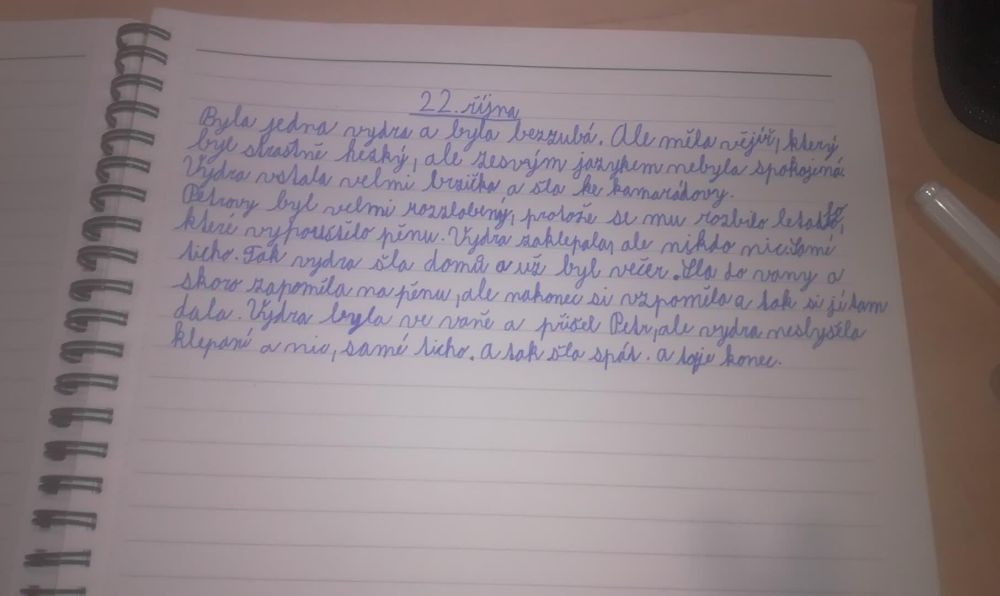 22. října
Byla jedna vydra a byla bezzubá. Ale měla vějíř, který
byl strastně hezký, ale zesvým jazykem nebyla spokojená.
Vydra vstala velmi brzičko a šla ke kamarádovy.
Petrovy byl velmi rozzlobený, protože se mu rozbilo letadlo,
které vypouštilo pěnu. Vydra zaklepala, ale nikdo nic. Samé
ticho. Tak vydra šla domů a už byl večer. Šla do vany a
skoro zapoměla na pěnu, ale nakonec si vzpoměla a tak si jí tam
dala. Vydra byla ve vaně a přišel Petr, ale vydra neslyšela
klepání a nic, samé ticho. A tak šla spát. a toje konec.